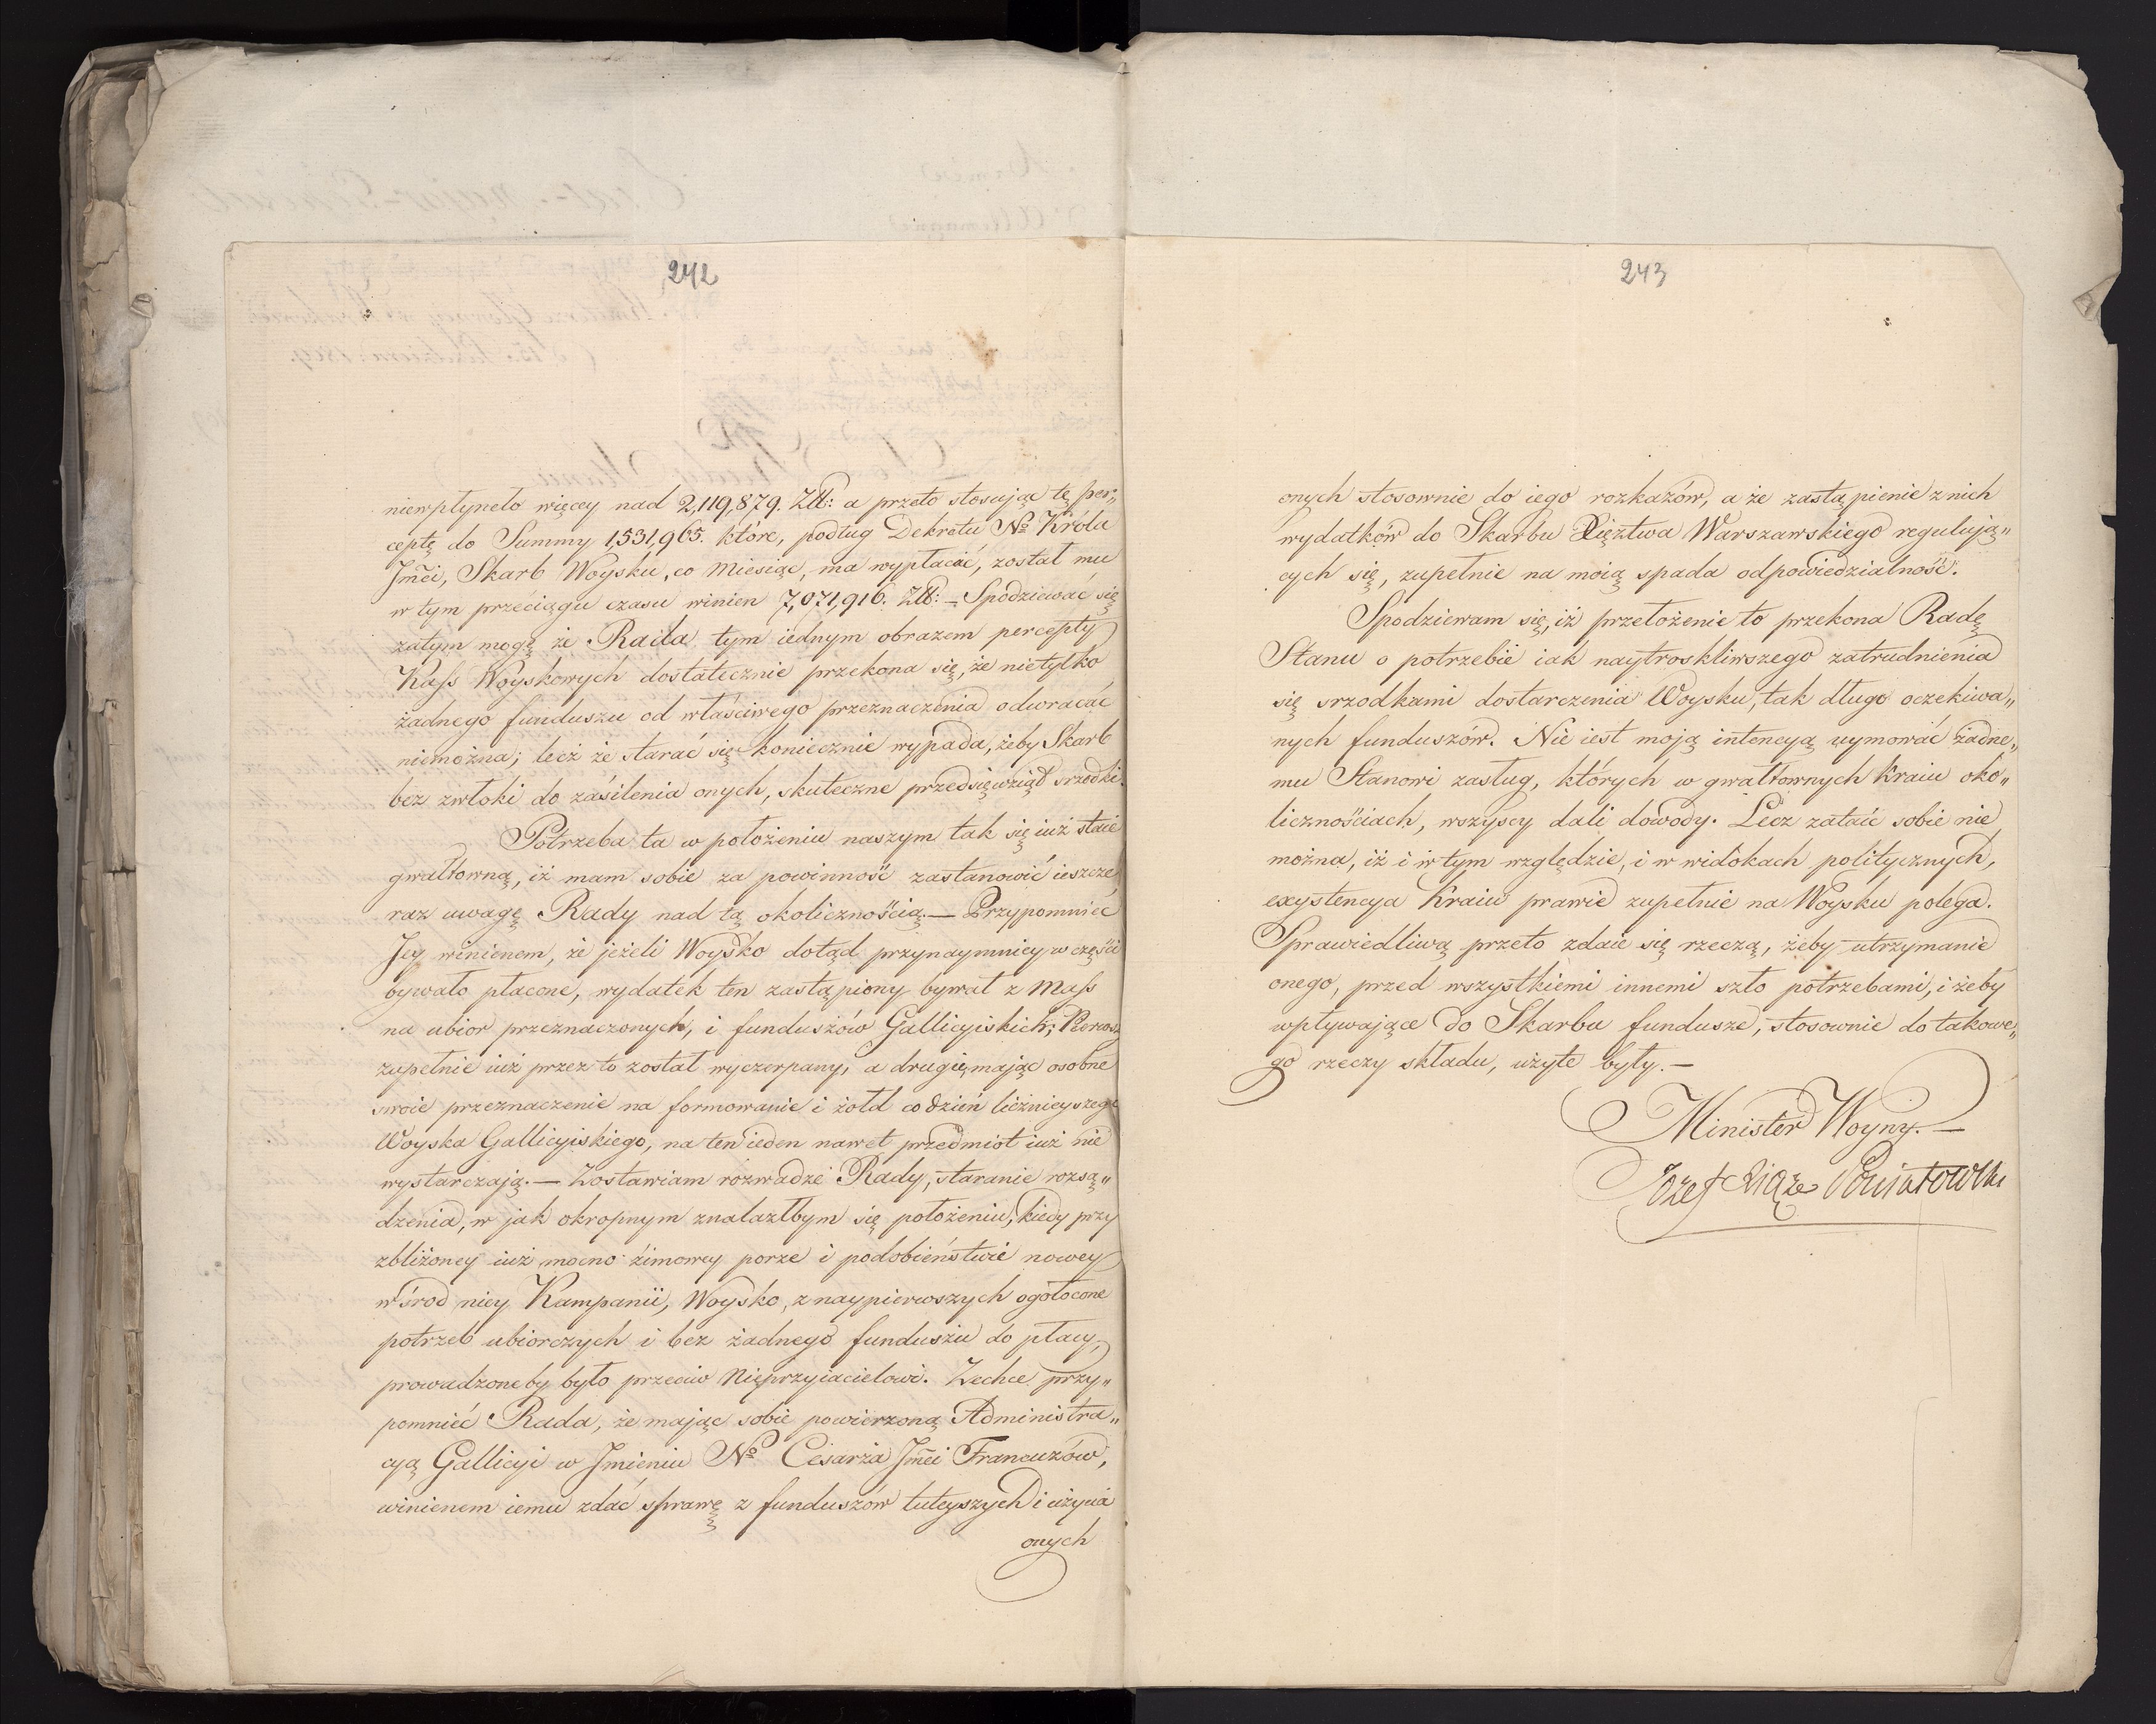 242
niewpłyneło więcey nad 2,119,879. Złł: a przeto stosując tę per„
ceptę do Summy 1,531,965. które, podług Dekretu No Króla
Jmći, Skarb Woysku, co Miesiąc, ma wypłacać, został mu
w tym przeciągu czasu winien 7,071,916. Złł: – Spodziewać się
zatym mogę że Rada tym iednym obrazem percepty
Kass Woyskowych dostatecznie przekona się, że nietylko
żadnego funduszu od właściwego przeznaczenia odwracać
niemożna; lecz że starać się koniecznie wypada, żeby Skarb
bez zwłoki do zasilenia onych, skuteczne przedsięwziął srzodki.
Potrzeba ta w położeniu naszym tak się iuż staie
gwałtowną, iż mam sobie za powinność zastanowić ieszcze
raz uwagę Rady nad tą okolicznością. — Przypomnieć
Jey winienem, że jeżeli Woysko dotąd przynaymniey w części
bywało płacone, wydatek ten zastąpiony bywał z Mass
na ubior przeznaczonych, i funduszów Gallicyiskich; Pierwsz
zupełnie iuż przez to został wyczerpany, a drugie, mając osobne
swoie przeznaczenie na formowanie i żołd co dzień licznieyszego
Woyska Gallicyiskiego, na ten ieden nawet przedmiot iuż nie
wystarczają. — Zostawiam rozwadze Rady, staranie rozsą„
dzenia, w jak okropnym znalazłbym się położeniu, kiedy przy
zbliżoney iuż mocno zimowey porze i podobieństwie nowey
wśrod niey Kampanii, Woysko, z naypierwszych ogołocone
potrzeb ubiorczych i bez żadnego funduszu do płacy,
prowadzoneby było przeciw Nieprzyiacielowi. Zechce przy„
pomnieć Rada, że mając sobie powierzoną Administra„
cyą Gallicyi w Jmieniu No Cesarza Jmći Francuzów,
winienem iemu zdać sprawę z funduszów tuteyszych i użycia
onych
243
onych stosownie do iego rozkazów, a że zastąpienie z nich
wydatków do Skarbu Xięztwa Warszawskiego regulują„
cych się, zupełnie na moią spada odpowiedzialność.
Spodziewam się, iż przełożenie to przekona Radę
Stanu o potrzebie iak naytroskliwszego zatrudnienia
się srzodkami dostarczenia Woysku, tak długo oczekiwa„
nych funduszów. Nie iest moją intencyą uymować żadne„
mu Stanowi zasług, których w gwałtownych Kraiu oko„
licznościach, wszyscy dali dowody. Lecz zataić sobie nie
można, iż i w tym względzie, i w widokach politycznych,
exystencya Kraiu prawie zupełnie na Woysku polega.
Sprawiedliwą przeto zdaie się rzeczą, żeby utrzymanie
onego, przed wszystkiemi innemi szło potrzebami, i żeby
wpływające do Skarbu fundusze, stosownie do takowe„
go rzeczy składu, użyte były. —
Minister Woyny. —
Jozef Xiąże Poniatowski